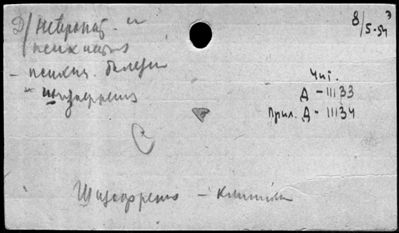 Д/Невропат. и
психиатр
8/5-54
- психич. болезни
" шизофрения
Чит.
Д - 11133
Прил. Д - 11134
Шизофрения - клиника